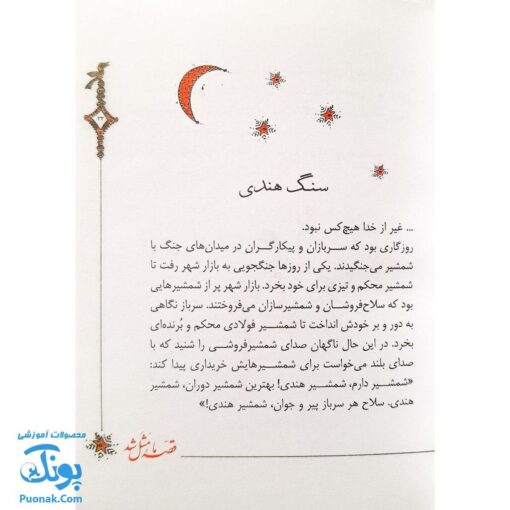 ۲۳
سنگ هندی
... غیر از خدا هیچ‌کس نبود.
روزگاری بود که سربازان و پیکارگران در میدان‌های جنگ با
شمشیر می‌جنگیدند. یکی از روزها جنگجویی به بازار شهر رفت تا
شمشیر محکم و تیزی برای خود بخرد. بازار شهر پر از شمشیرهایی
بود که سلاح‌فروشان و شمشیرسازان می‌فروختند. سرباز نگاهی
به دور و بر خودش انداخت تا شمشیر فولادی محکم و بُرنده‌ای
بخرد. در این حال ناگهان صدای شمشیرفروشی را شنید که با
صدای بلند می‌خواست برای شمشیرهایش خریداری پیدا کند:
«شمشیر دارم، شمشیر هندی! بهترین شمشیر دوران، شمشیر
هندی. سلاح هر سرباز پیر و جوان، شمشیر هندی!»
قصه ما مثل شد
محصولات آموزشی
پونک
Puonak.Com